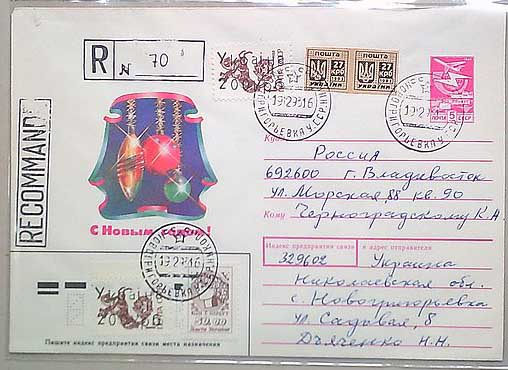 R № 70
Україна
200-00
ПОШТА ПОШТА
27 27
КРБ КРБ
1991 1991
УКРАЇНИ УКРАЇНИ
5
ПОЧТА СССР
RECOMMANDÉ
С Новым годом!
Куда
Россия
692600 г. Владивосток
ул. Морская 88 кв. 90
Кому Черноградскому К А
Индекс предприятия связи и адрес отправителя
329602 Украина
Николаевская обл.
с. Новогригорьевка
ул. Садовая, 8
Дьяченко Н-Н.
Україна
200-00
Пишите индекс предприятия связи места назначения